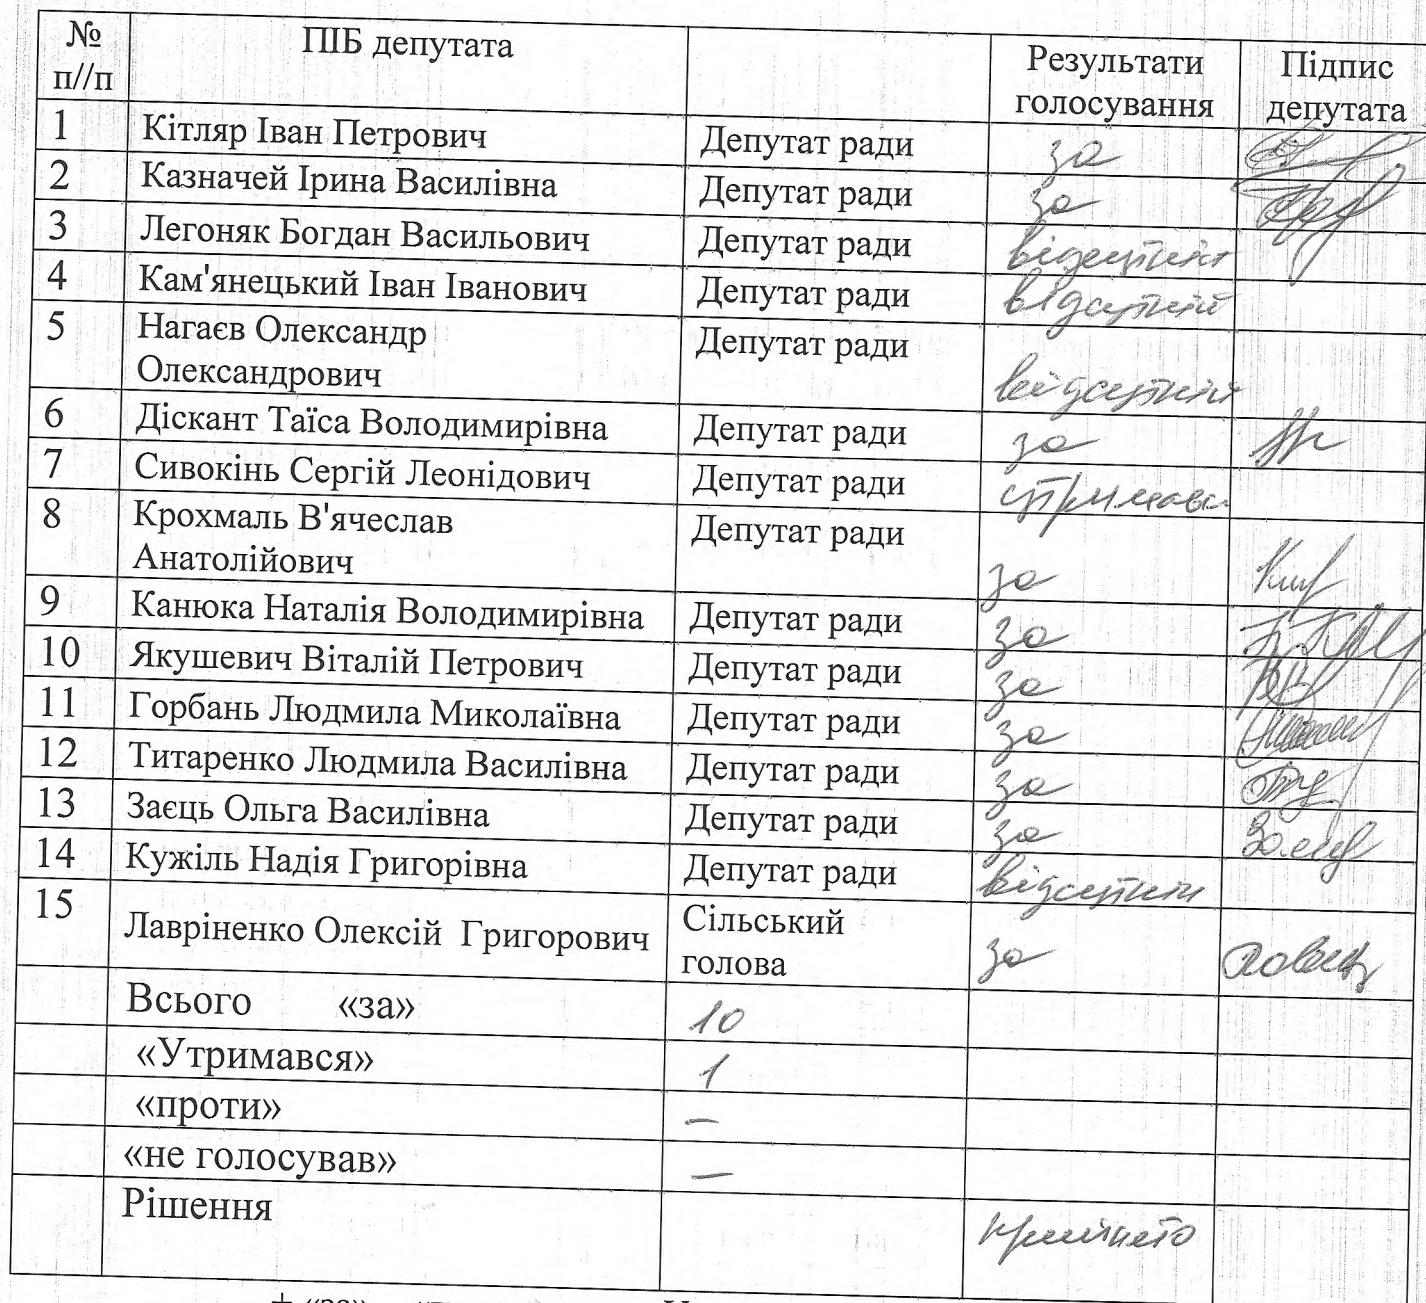 № п//п ПІБ депутата Результати голосування Підпис депутата
1 Кітляр Іван Петрович Депутат ради за
2 Казначей Ірина Василівна Депутат ради за
3 Легоняк Богдан Васильович Депутат ради відсутній
4 Кам'янецький Іван Іванович Депутат ради відсутній
5 Нагаєв Олександр Олександрович Депутат ради відсутній
6 Діскант Таїса Володимирівна Депутат ради за
7 Сивокінь Сергій Леонідович Депутат ради
8 Крохмаль В'ячеслав Анатолійович Депутат ради за
9 Канюка Наталія Володимирівна Депутат ради за
10 Якушевич Віталій Петрович Депутат ради за
11 Горбань Людмила Миколаївна Депутат ради за
12 Титаренко Людмила Василівна Депутат ради за
13 Заєць Ольга Василівна Депутат ради за
14 Кужіль Надія Григорівна Депутат ради
15 Лавріненко Олексій Григорович Сільський голова за
Всього «за» 10
«Утримався» 1
«проти» –
«не голосував» –
Рішення прийнято